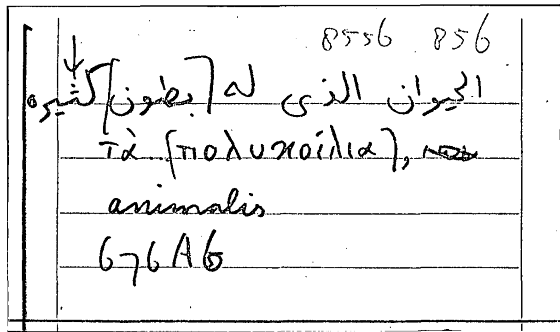 8556 856
الحيوان الذى له [بطون] كثيره
τὰ [πολυκοίλια],
animalis
676A6